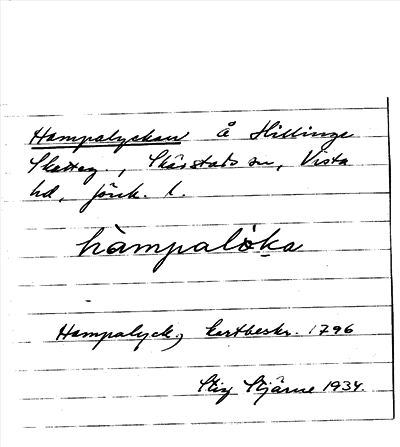 Hampalyckan å Hillinge
Skatteg., Skärstads sn, Vista
hd, Jönk. l.
hàmpalöka
Hampalyck, kartbeskr. 1796
Stig Stjärne 1934.